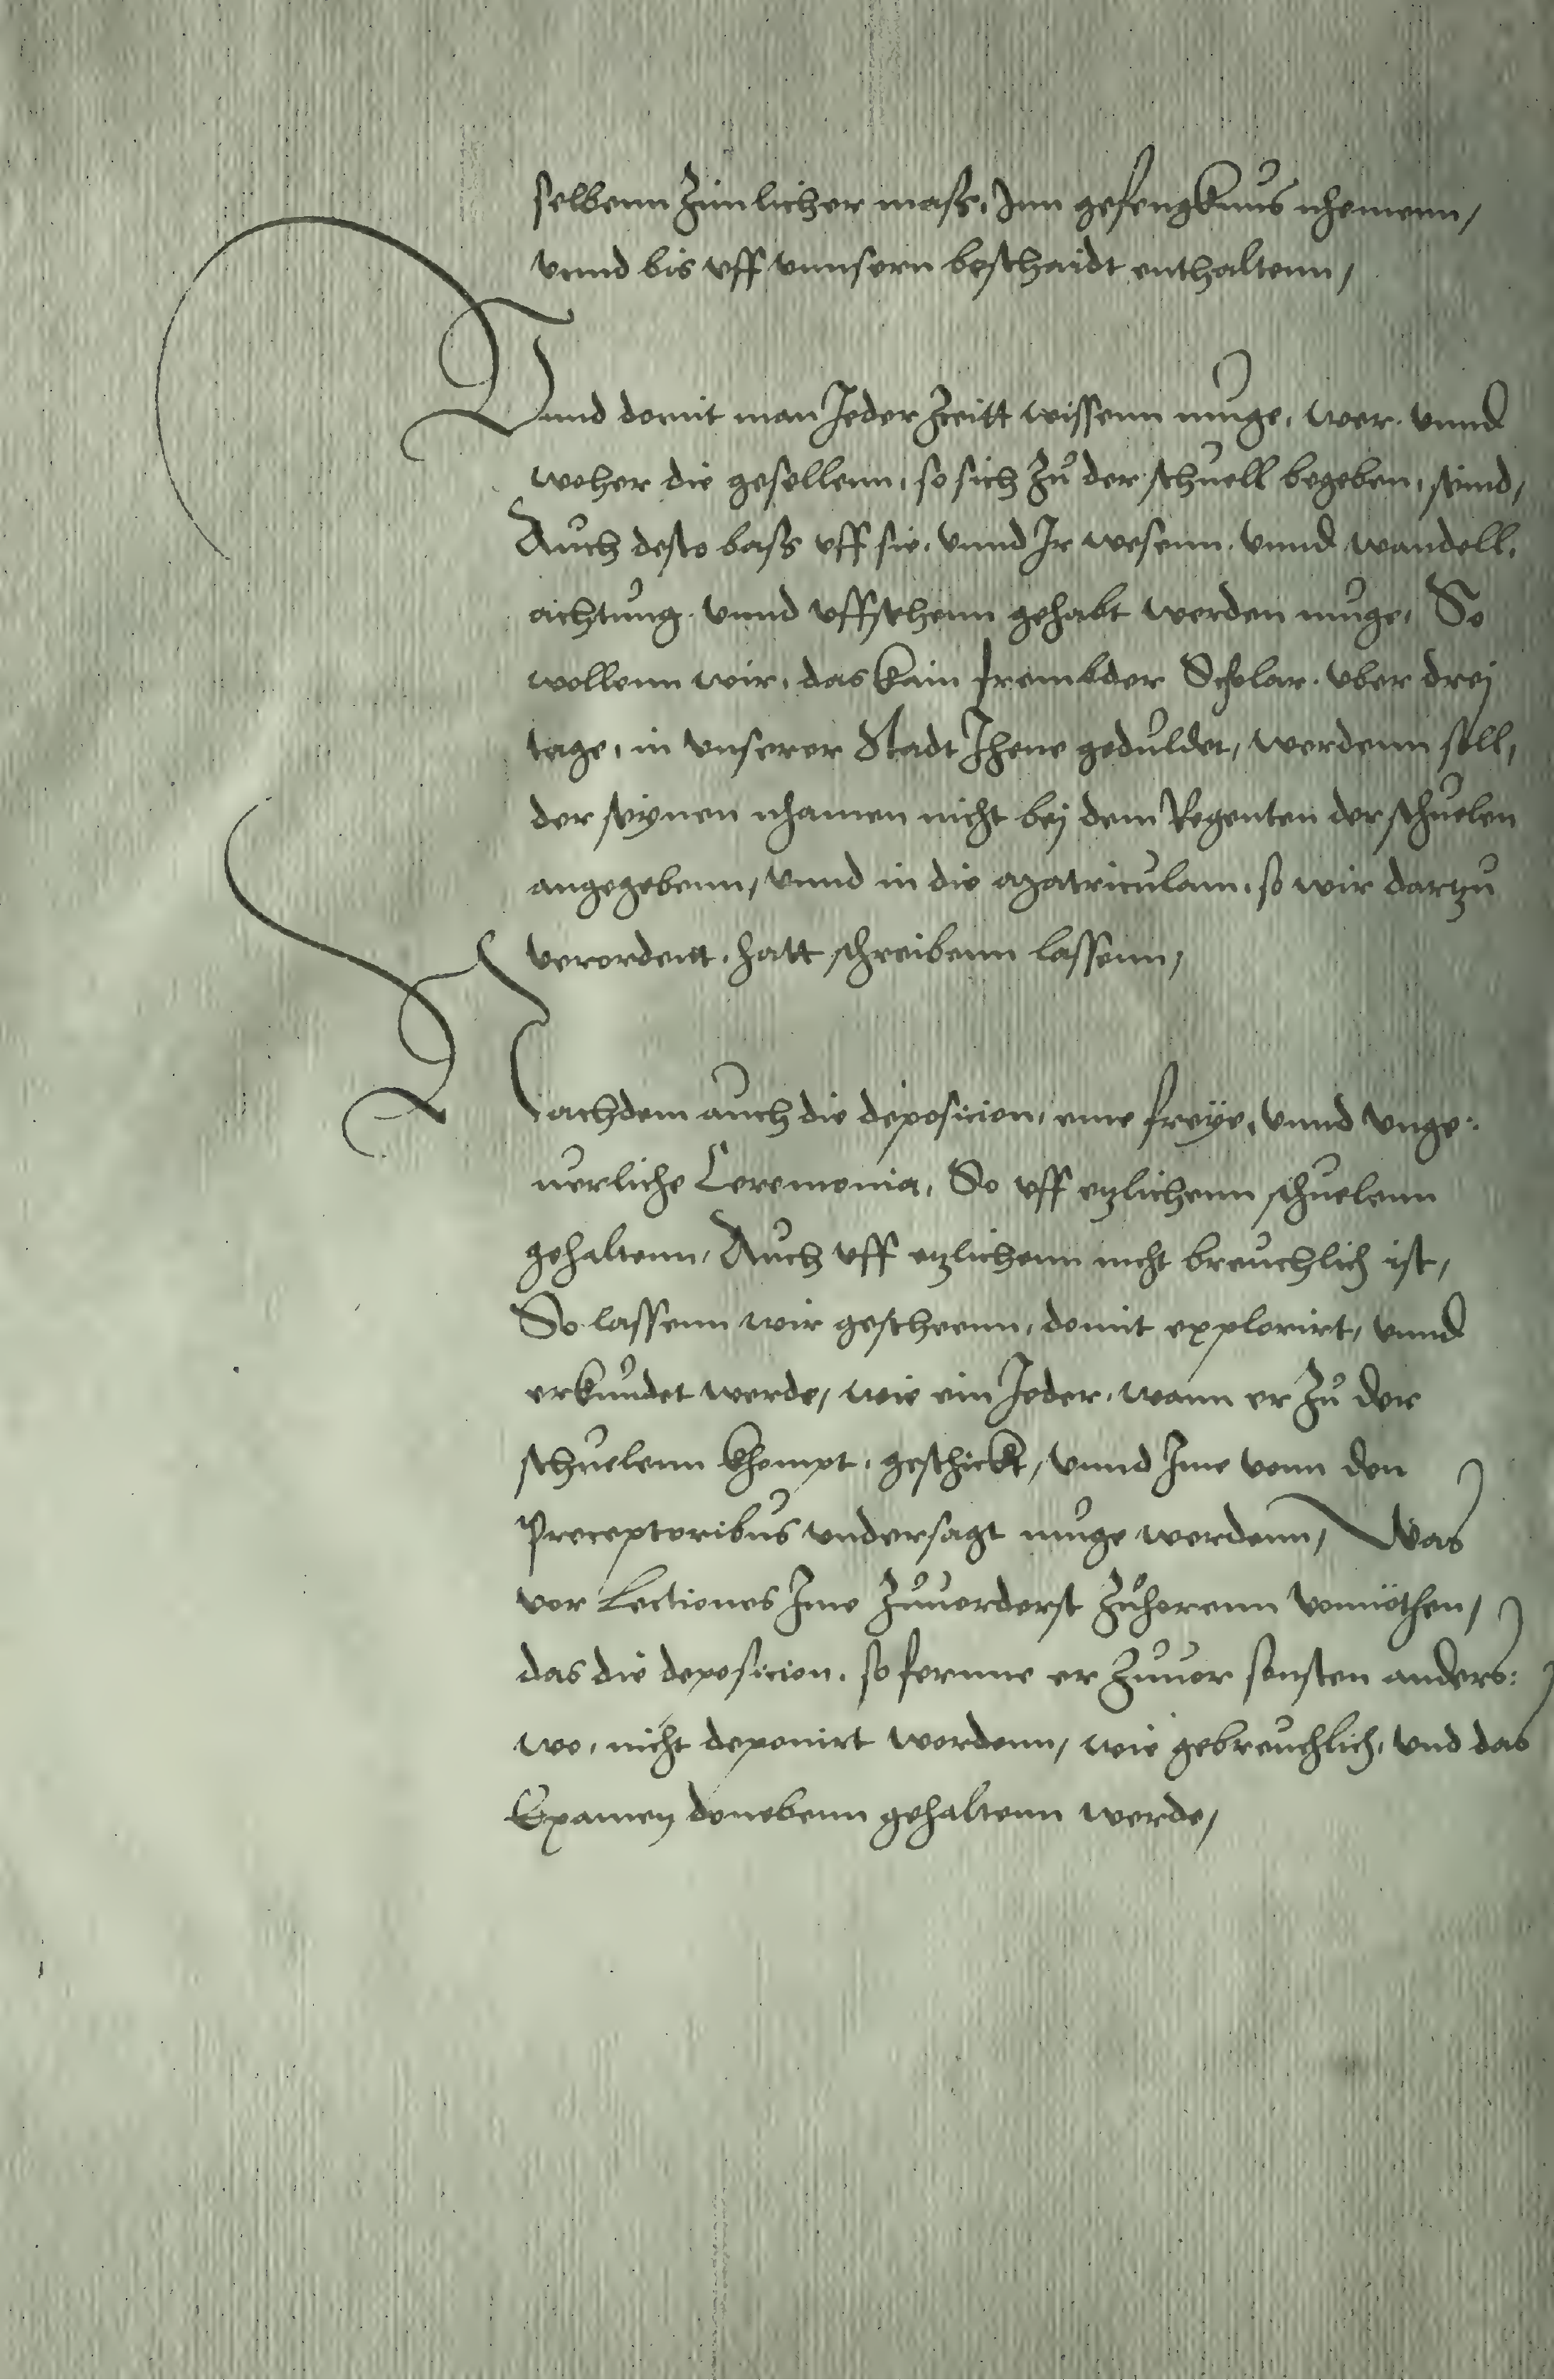 selbenn zimlicher mass, Inn gefengknus nhemenn,
vnnd bis vff vnnsern beschaidt enthaltenn,
Vnnd domit man Jeder Zceitt wissenn muge, wer vnnd
woher die gesellenn, so sich zu der schuell begeben, seind,
Auch desto bass vff sie, vnnd Ir wesenn, vnnd wandell,
achtung vnnd vffsehenn gehabt werden muge, So
wollenn wir, das kain frembder Scholar vber drej
tage, in vnserer Stadt Jhene geduldet, werdenn soll,
der seynen nhamen nicht bej dem Regenten der schuelen
angegebenn, vnnd in die Matriculam, so wir dartzu
verordent, hatt schreibenn lassenn,
Nachdem auch die deposicion, eine freye, vnnd vnge:
uerliche Ceremonia, So vff etzlichenn schuelenn
gehaltenn, Auch vff etzlichenn nicht breuchlich ist,
So lassenn wir gescheenn, domit explorirt, vnnd
erkundet werde, wie ein Jeder, wann er zu der
schuelenn khompt, geschickt, vnnd Ime vonn den
Preceptoribus vndersagt muge werdenn, Was
vor Lectiones Ime zuuorderst zuhorenn vonnöthen,
das die deposicion, so fernne er zuuor sonsten anders:
wo, nicht deponirt wordenn, wie gebreuchlich, vnd das
Examen donebenn gehaltenn werde,